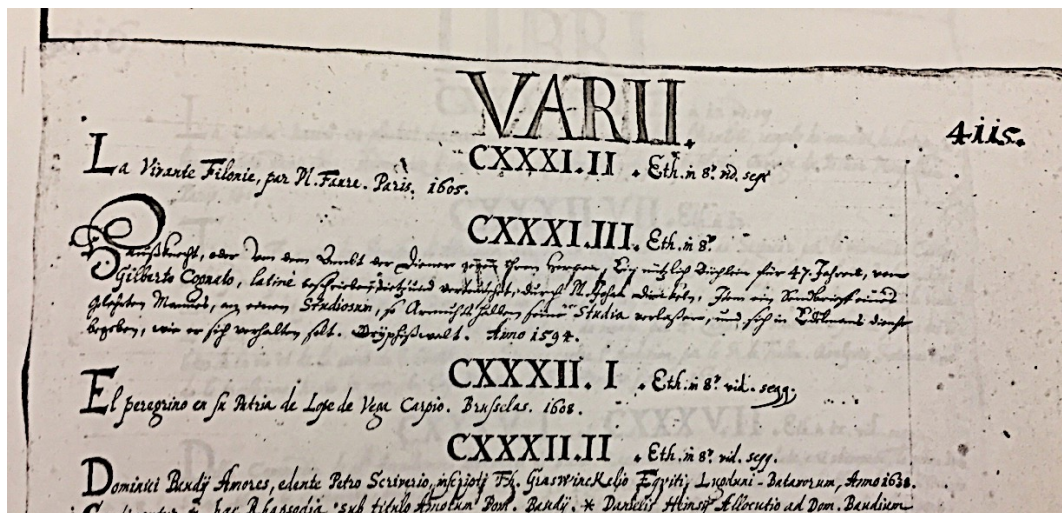 VARII.
4115.
CXXXI.II . Eth. in 8º. vid. seq.
La Vivante Filonie, par M. Faure. Paris. 1605.
CXXXI.III. Eth. in 8º
oder Von dem Ambt der Diener gegen Ihren Herren, Ein nützlich Büchlein für 47. Jahren, von
Gilberto Cognato, latinè beschrieben, ietzund verteutschet, durch M. Item ein Sendbrieff eines
gelehrten Mannes, an einen Studiosum, so Armuth halben seine Studia verlassen, und sich in Edelmans dienst
begeben, wie er sich verhalten solt. Anno 1594.
CXXXII. I . Eth. in 8º. vid. seqq.
El peregrino en su Patria de Lope de Vega Carpio. Brusselas. 1608.
CXXXII.II . Eth. in 8º. vid. seqq.
Dominici Baudij Amores, edente Petro Scriverio, inscripti Th. Graswinckelio Equiti, Lugduni-Batavorum, Anno 1638.
hac Rhapsodia sub titulo Amorum Dom. Baudij. * Danielis Heinsij Allocutio ad Dom. Baudium